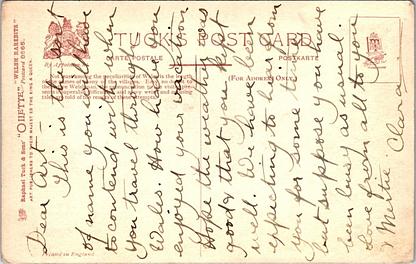 Dear All.
This is the sort
of name you will have
to contend with when
you travel through
Wales. How have you
enjoyed your vacation
Hope the weather was
good & that you kept
well. We have been
expecting to hear from
you for some time
but suppose you have
been busy as usual.
Love from all to you
& Mattie. Clara
TUCK'S POST CARD
CARTE POSTALE
POSTKARTE
(FOR ADDRESS ONLY.)
Raphael Tuck & Sons' "OILETTE," "WELSH RAREBITS"
Postcard
ART PUBLISHERS TO THEIR MAJESTIES THE KING & QUEEN.
Printed in England